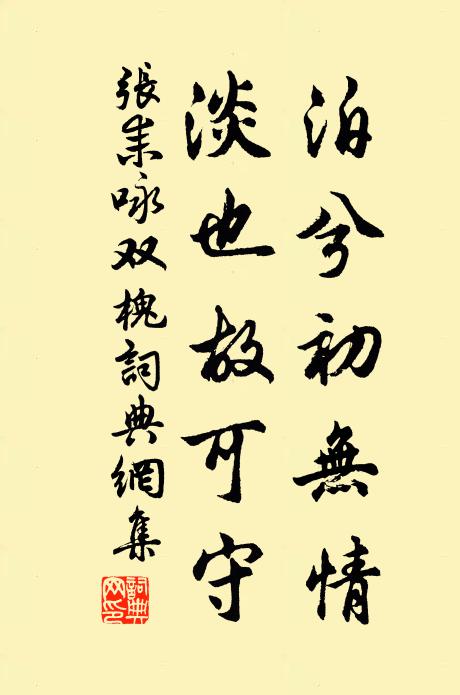 泊兮初無情
淡也故可守
張耒咏双槐詞典網集
詞典网印